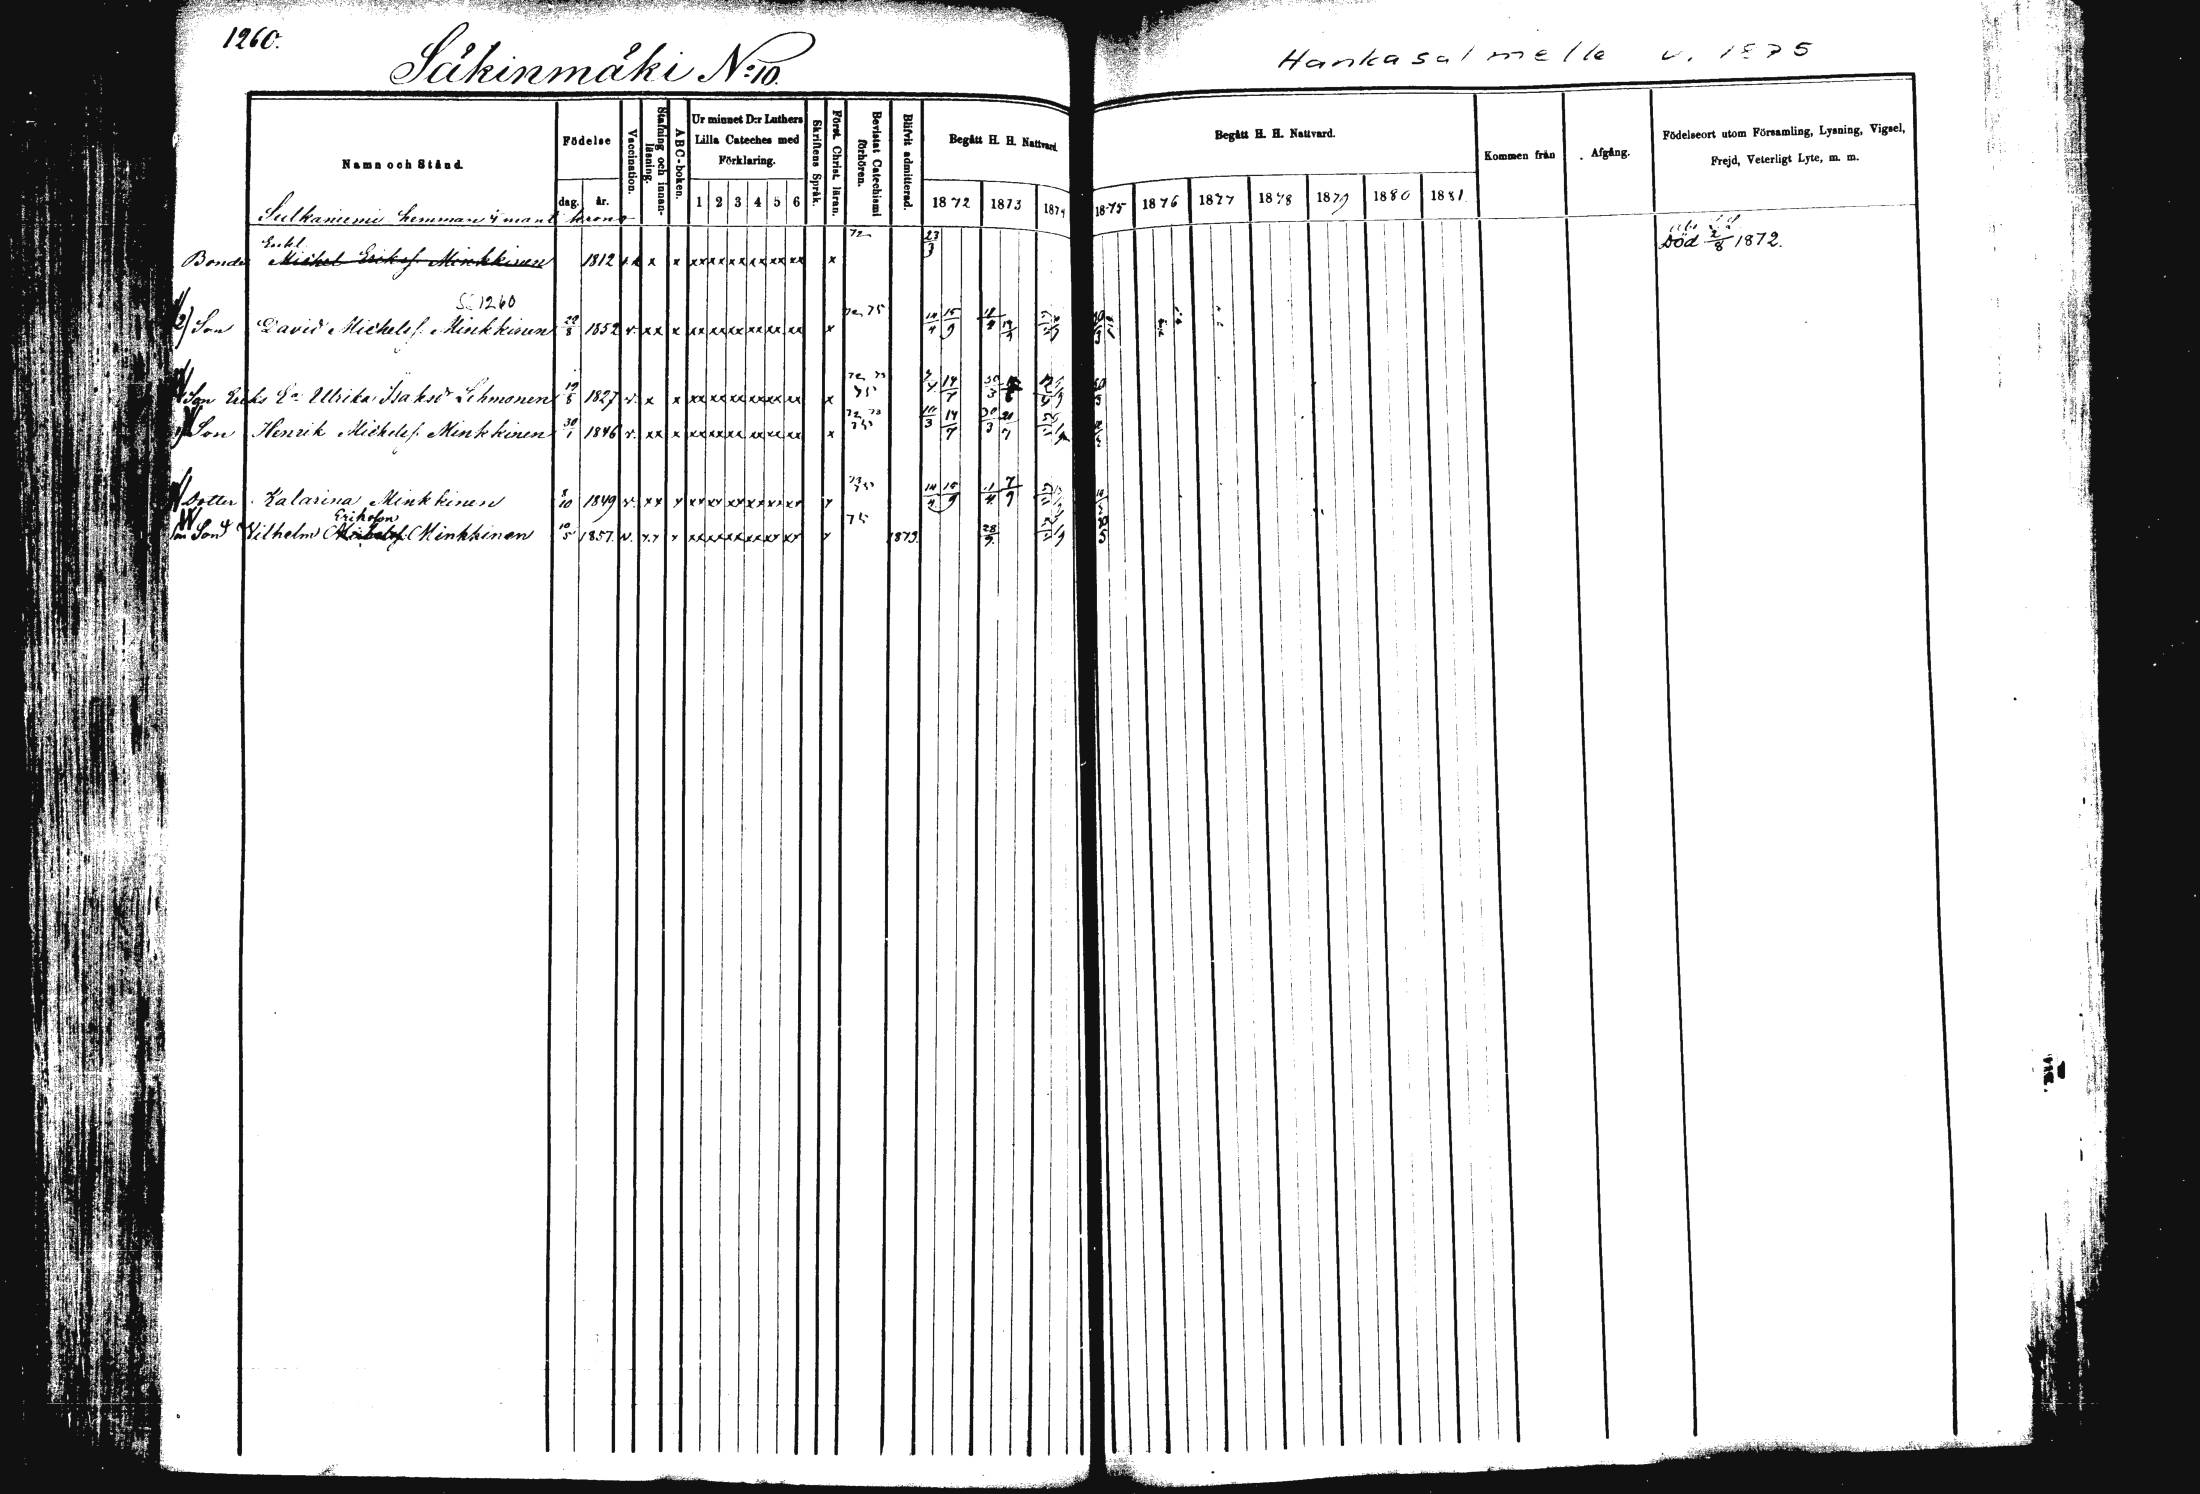 1260.
Säkinmäki No 10.
Hankasalmelle v. 1875
Namn och Stånd.
Födelse
dag.
år.
Vaccination.
Stafning och innan-läsning.
ABC-boken.
Ur minnet D:r Luthers
Lilla Cateches med
Förklaring.
1 2 3 4 5 6
Skriftens Språk.
Först. Christ. läran.
Bevistat Catechismi förhören.
Blifvit admitterad.
Begått H. H. Nattvard.
1872 1873 1874
Begått H. H. Nattvard.
1875 1876 1877 1878 1879 1880 1881
Kommen från
Afgång.
Födelseort utom Församling, Lysning, Vigsel,
Frejd, Veterligt Lyte, m. m.
Sulkaniemi hemman mant krono
Enkl.
Bonde Michel Eriksf. Minkkinen 1812 x x xx xx xx xx xx xx x 72 23/3 Död 2/8 1872.
1260
2) Son David Michelsf. Minkkinen 29/8 1852 v. xx x xx xx xx xx xx xx x 72 75
Son Eriks Ea Ulrika Isaksdr Lehmonen 19/8 1827 v. x x xx xx xx xx xx xx x
Son Henrik Michelsf. Minkkinen 30/1 1846 v. xx x xx xx xx xx xx xx x
Dotter Katarina Minkkinen 8/10 1849 v. xx x xx xx xx xx xx xx x
Eriksson
Son Vilhelm Michelsf. Minkkinen 10/5 1857. v. xx x xx xx xx xx xx xx x 75 1873. 28/9